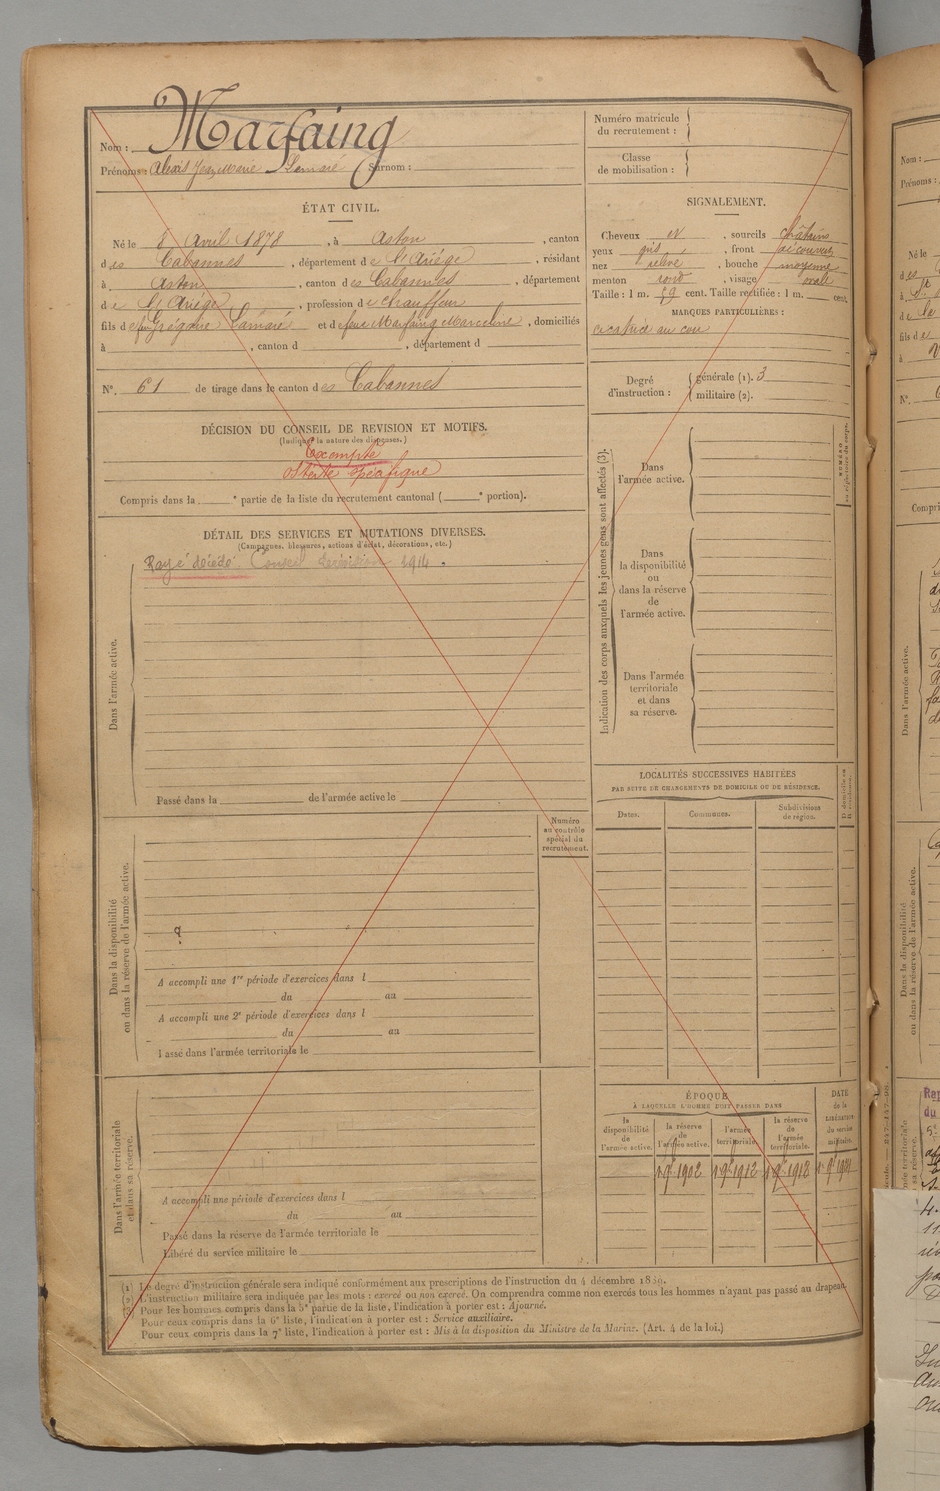 Nom : Marfaing
Prénoms : Alexis Jean Marie Lamaré Surnom :
ÉTAT CIVIL.
Né le 8 Avril 1878, à Aston, canton
des Cabannes, département de l'Ariège, résidant
à Aston, canton des Cabannes, département
de l'Ariège, profession de chauffeur
fils de feu Grégoire Lamaré et de feue Marfaing Marceline, domiciliés
à , canton d , département d
N°. 61 de tirage dans le canton des Cabannes
DÉCISION DU CONSEIL DE REVISION ET MOTIFS.
(Indiquer la nature des dispenses.)
Exempté
Ostéite spécifique
Compris dans la e partie de la liste du recrutement cantonal ( e portion).
DÉTAIL DES SERVICES ET MUTATIONS DIVERSES.
(Campagnes, blessures, actions d'éclat, décorations, etc.)
Rayé décédé. Conseil de révision 1914.
Dans l'armée active.
Passé dans la de l'armée active le
Numéro
au contrôle
spécial du
recrutement.
Dans la disponibilité
ou dans la réserve de l'armée active.
A accompli une 1re période d'exercices dans l
du au
A accompli une 2e période d'exercices dans l
du au
Passé dans l'armée territoriale le
Dans l'armée territoriale
et dans sa réserve.
A accompli une période d'exercices dans l
du au
Passé dans la réserve de l'armée territoriale le
Libéré du service militaire le
Numéro matricule
du recrutement :
Classe
de mobilisation :
SIGNALEMENT.
Cheveux et, sourcils châtains
yeux gris, front découvert
nez relevé, bouche moyenne
menton rond, visage ovale
Taille : 1 m. 59 cent. Taille rectifiée : 1 m. cent.
MARQUES PARTICULIÈRES :
cicatrice au cou
Degré
d'instruction :
générale (1). 3
militaire (2).
Indication des corps auxquels les jeunes gens sont affectés (3).
Dans
l'armée active.
Dans
la disponibilité
ou
dans la réserve
de
l'armée active.
Dans l'armée
territoriale
et dans
sa réserve.
LOCALITÉS SUCCESSIVES HABITÉES
PAR SUITE DE CHANGEMENTS DE DOMICILE OU DE RÉSIDENCE.
Dates. Communes. Subdivisions
de région.
ÉPOQUE
À LAQUELLE L'HOMME DOIT PASSER DANS
DATE
de la
LIBÉRATION
du service
militaire.
la
disponibilité
de
l'armée active.
la réserve
de
l'armée active.
l'armée
territoriale.
la réserve
de
l'armée
territoriale.
(1) Le degré d'instruction générale sera indiqué conformément aux prescriptions de l'instruction du 4 décembre 1889.
(2) L'instruction militaire sera indiquée par les mots : exercé ou non exercé. On comprendra comme non exercés tous les hommes n'ayant pas passé au drapeau.
(3) Pour les hommes compris dans la 5e partie de la liste, l'indication à porter est : Ajourné.
Pour ceux compris dans la 6e liste, l'indication à porter est : Service auxiliaire.
Pour ceux compris dans la 7e liste, l'indication à porter est : Mis à la disposition du Ministre de la Marine. (Art. 4 de la loi.)